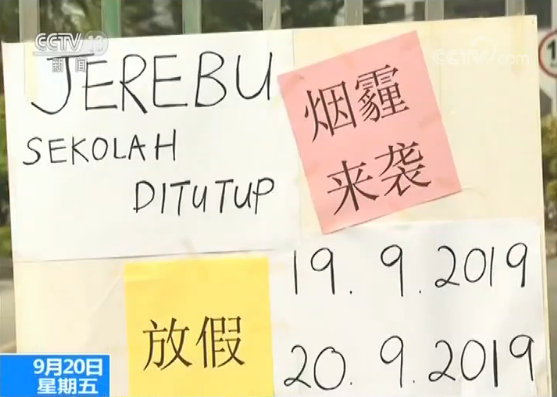 CCTV 13
新闻
CCTV.com
JEREBU
SEKOLAH
DITUTUP
烟霾
来袭
19.9.2019
放假
20.9.2019
9月20日
星期五